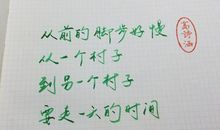 从前的脚步好慢
从一个村子
到另一个村子
要走一天的时间